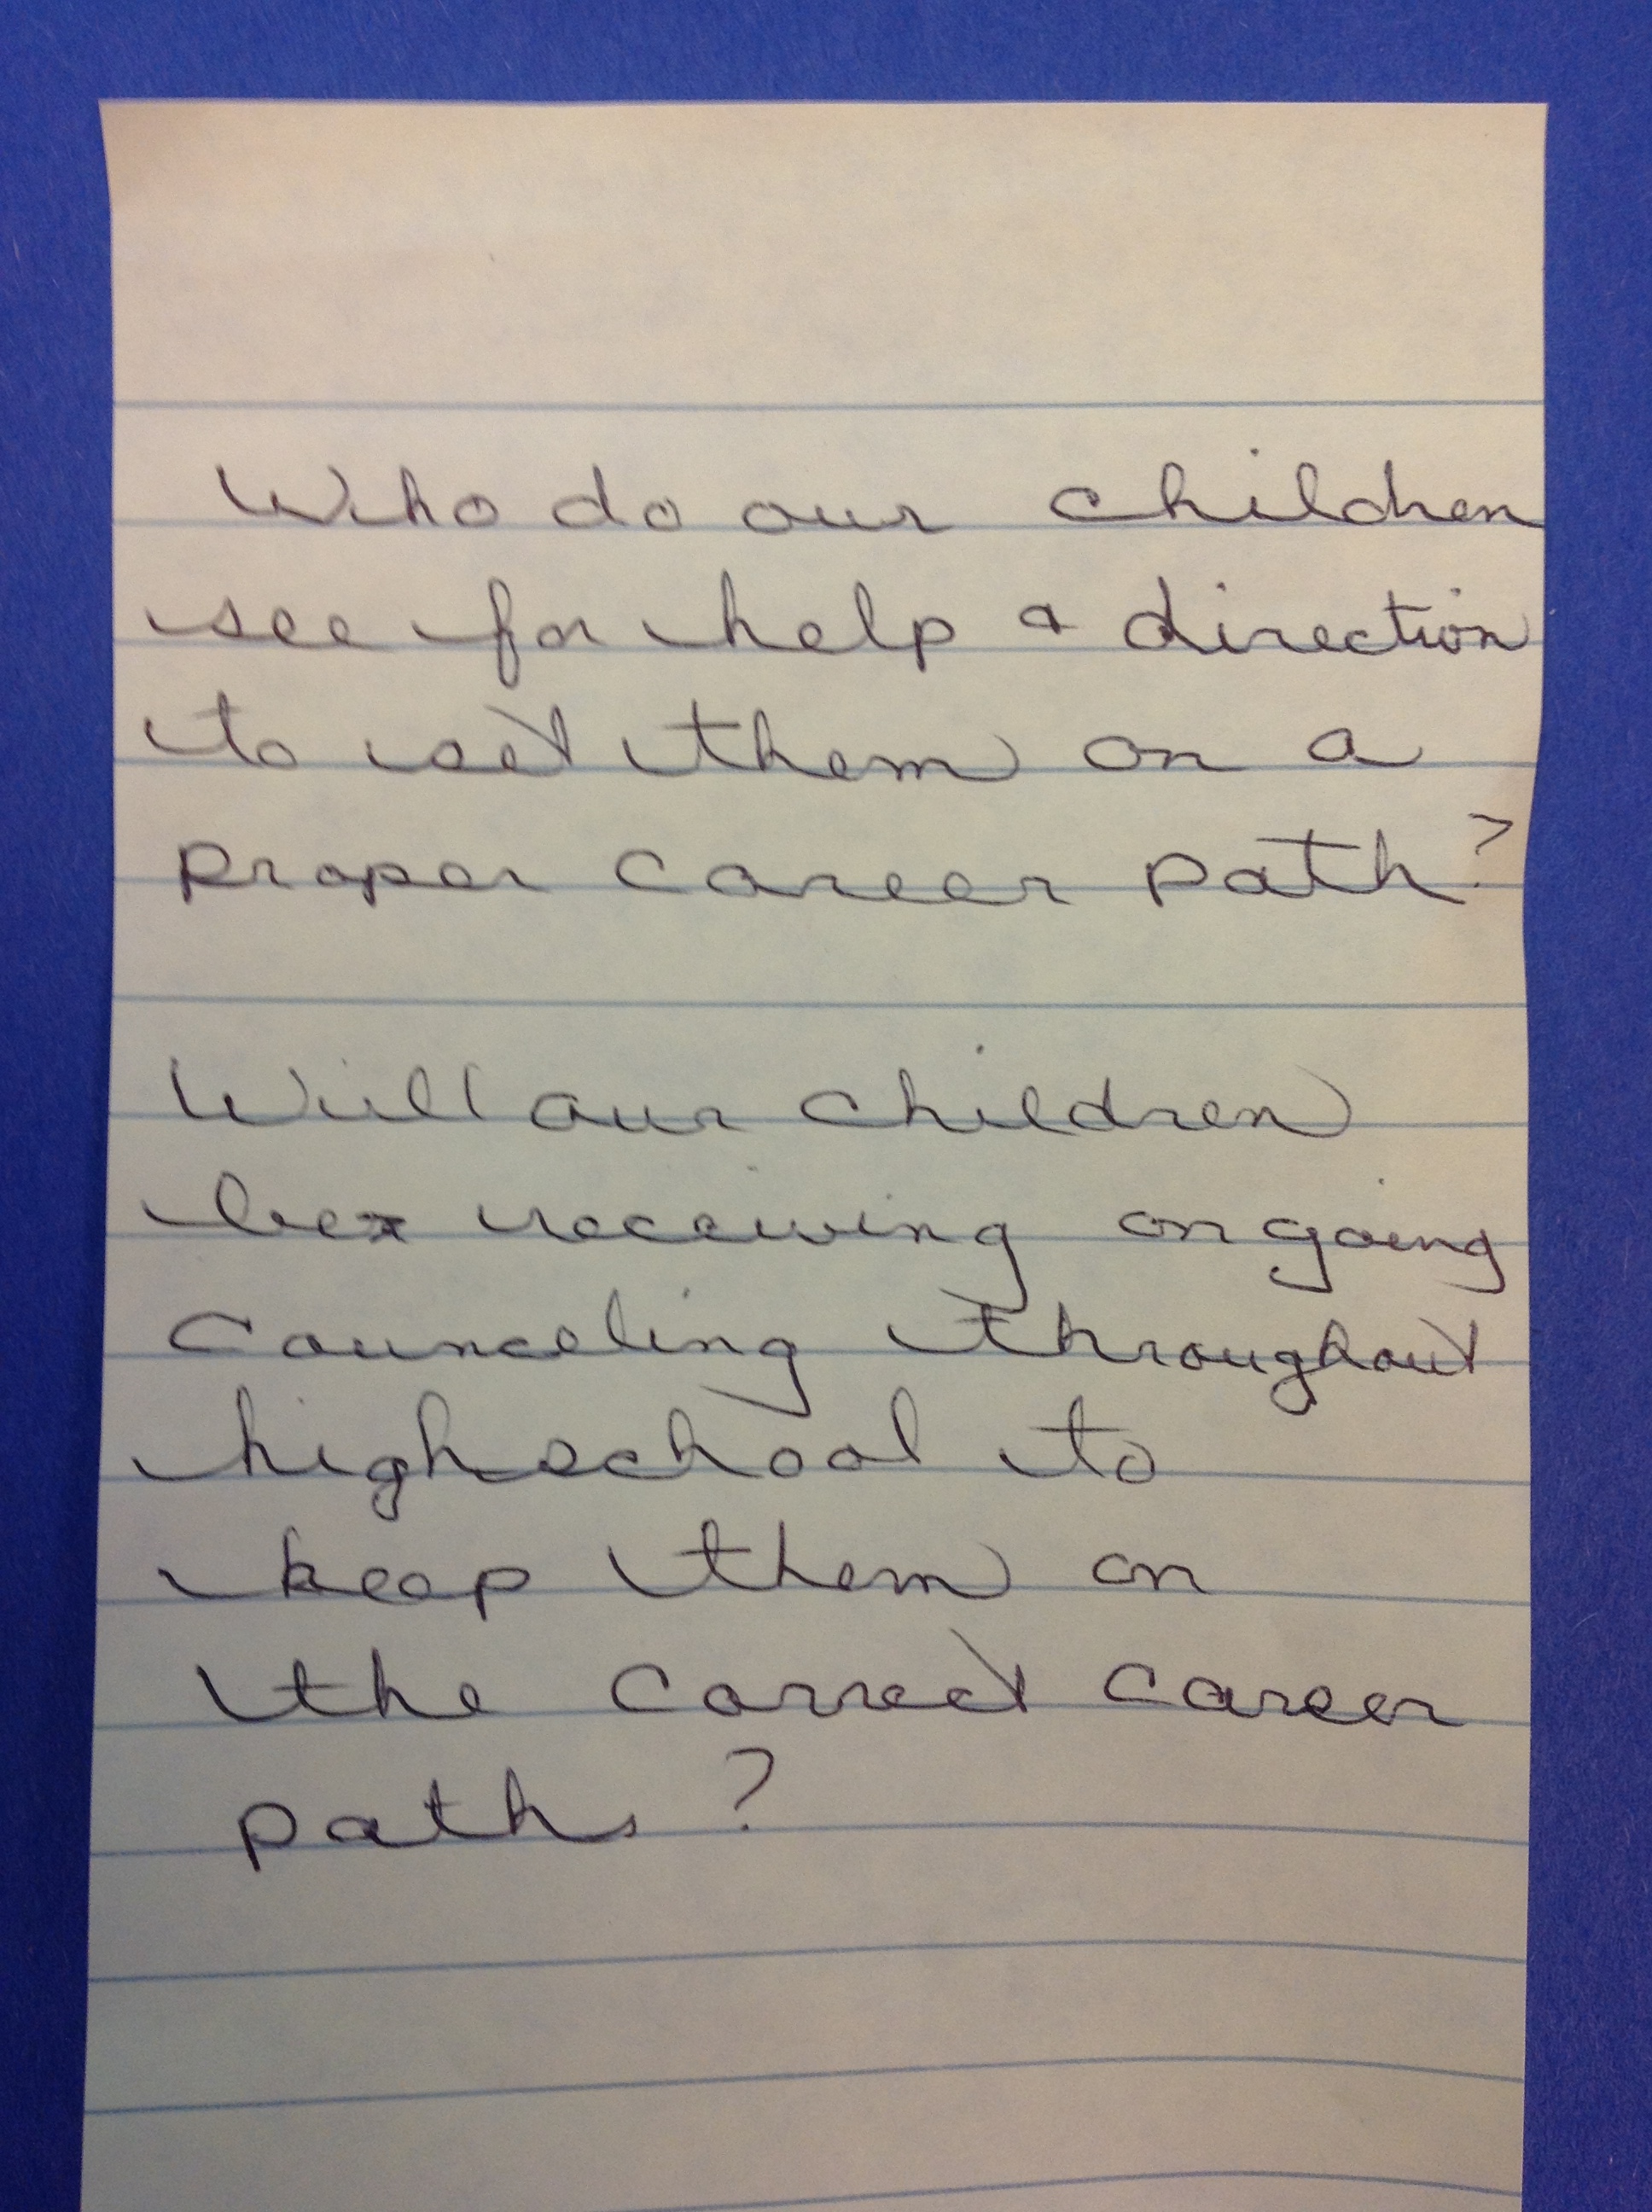 Who do our children
see for help & direction
to set them on a
proper career path?
Will our children
be receiving ongoing
counceling throughout
highschool to
keep them on
the correct career
paths?